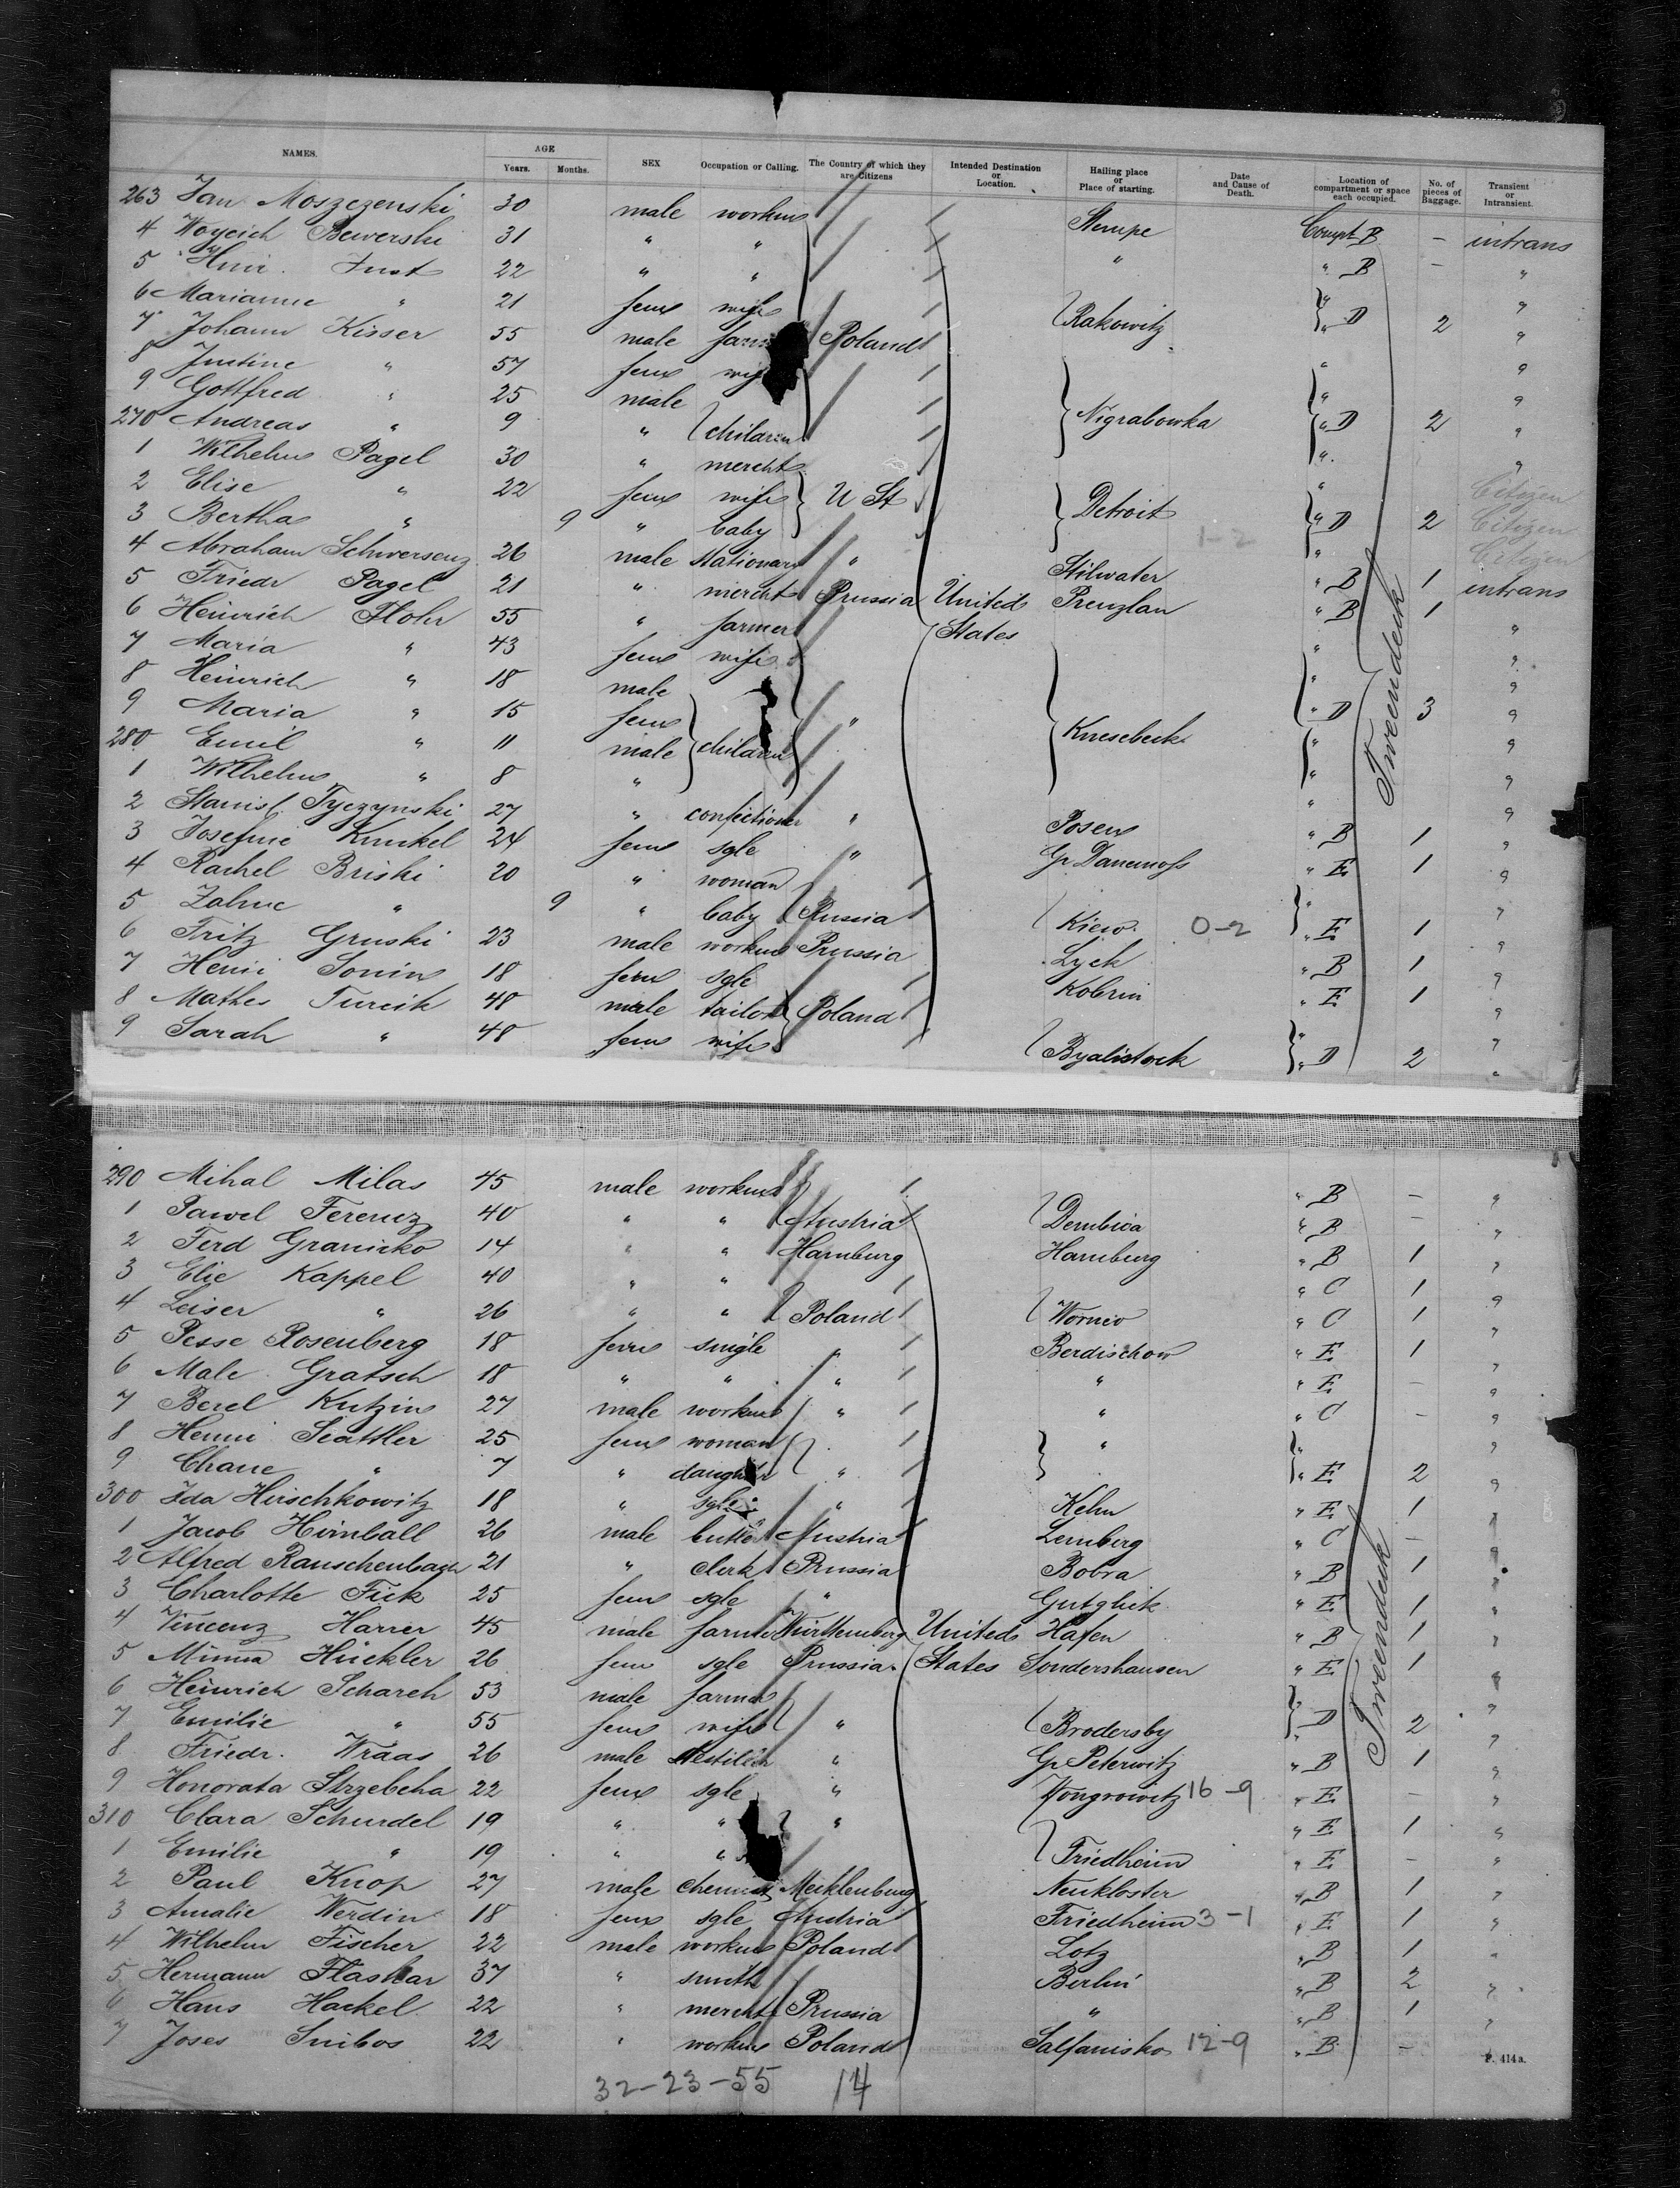 NAMES. AGE Years. Months. SEX Occupation or Calling. The Country of which they are Citizens Intended Destination or Location. Hailing place or Place of starting. Date and Cause of Death. Location of compartment or space each occupied. No. of pieces of Baggage. Transient or Intransient.
263 Jan Moszczenski 30 male workm Stempe Compt B - intrans
4 Woycich Bewerski 31 " " " " B - "
5 Heinr. Just 22 " " " "
6 Marianne " 21 fem wife Rakowitz " D 2 "
7 Johann Kisser 55 male farm Poland " "
8 Justine " 57 fem wife " "
9 Gottfred " 25 male Nigrabowka " D 2 "
270 Andreas " 9 " children " "
1 Wilhelm Pagel 30 " mercht " Citizen
2 Elise " 22 fem wife U St Detroit " D 2 Citizen
3 Bertha " 9 " baby 1-2 " Citizen
4 Abraham Schwersenz 26 male Stationary " Stilwater " B 1 intrans
5 Friedr Pagel 21 " mercht Prussia United Prenzlau " B 1 "
6 Heinrich Flohr 55 " farmer States " "
7 Maria " 43 fem wife " "
8 Heinrich " 18 male " D 3 "
9 Maria " 15 fem " Knesebeck " "
280 Emil " 11 male children " "
1 Wilhelm " 8 " " "
2 Stanisl. Tyczynski 27 " confectioner " Posen " B 1 "
3 Josefine Kunkel 24 fem sgle " Gr Danemoss " E 1 "
4 Rachel Briski 20 " woman " "
5 Zahne " 9 " baby Russia Kiew 0-2 " E 1 "
6 Fritz Gruski 23 male workm Prussia Lyck " B 1 "
7 Henni Sonin 18 fem sgle Kobrin " E 1 "
8 Mathes Turcik 48 male tailor Poland " "
9 Sarah " 48 fem wife Byalistock " D 2 "
Tweendeck
290 Mihal Milas 45 male workm " B - "
1 Pawel Ferenz 40 " " Austria Dembica " B - "
2 Ferd Granicko 14 " " Hamburg Hamburg " B 1 "
3 Elie Kappel 40 " " " C 1 "
4 Leiser " 26 " " Poland Wornio " C 1 "
5 Pesse Rosenberg 18 fem single " Berdischow " E 1 "
6 Male Gratsch 18 " " " " " E - "
7 Berel Kutzin 27 male workm " " " C - "
8 Henni Seattler 25 fem woman " " "
9 Chane " 7 " daughter " " E 2 "
300 Ida Hirschkowitz 18 " sgle " Kehn " E 1 "
1 Jacob Hirnball 26 male butter Austria Lemberg " C - "
2 Alfred Rauschenbach 21 " clerk Prussia Bobra " B 1 "
3 Charlotte Fick 25 fem sgle " Gutglick " E 1 "
4 Vincenz Harrer 45 male farmer Württemberg United Hafen " B 1 "
5 Minna Hückler 26 fem sgle Prussia States Sondershausen " E 1 "
6 Heinrich Scharch 53 male farmer " "
7 Emilie " 55 fem wife " Brodersby D 2 "
8 Friedr. Wraas 26 male " Gr Peterwitz " B 1 "
9 Honorata Strzebcha 22 fem sgle " Wongrowitz 16-9 " E - "
310 Clara Schundel 19 " " " " E 1 "
1 Emilie " 19 " " Friedheim " E - "
2 Paul Knop 27 male chemist Mecklenburg Neukloster " B 1 "
3 Amalie Werdin 18 fem sgle Austria Friedheim 3-1 " E 1 "
4 Wilhelm Fischer 22 male workm Poland Lotz " B 1 "
5 Hermann Flaskar 37 " smith Berlin " B 2 "
6 Hans Hackel 22 " mercht Prussia " " B 1 "
7 Joses Snibos 22 " workm Poland Salfanisko 12-9 " B -
Tweendeck
F. 414a.
32-23-55 14